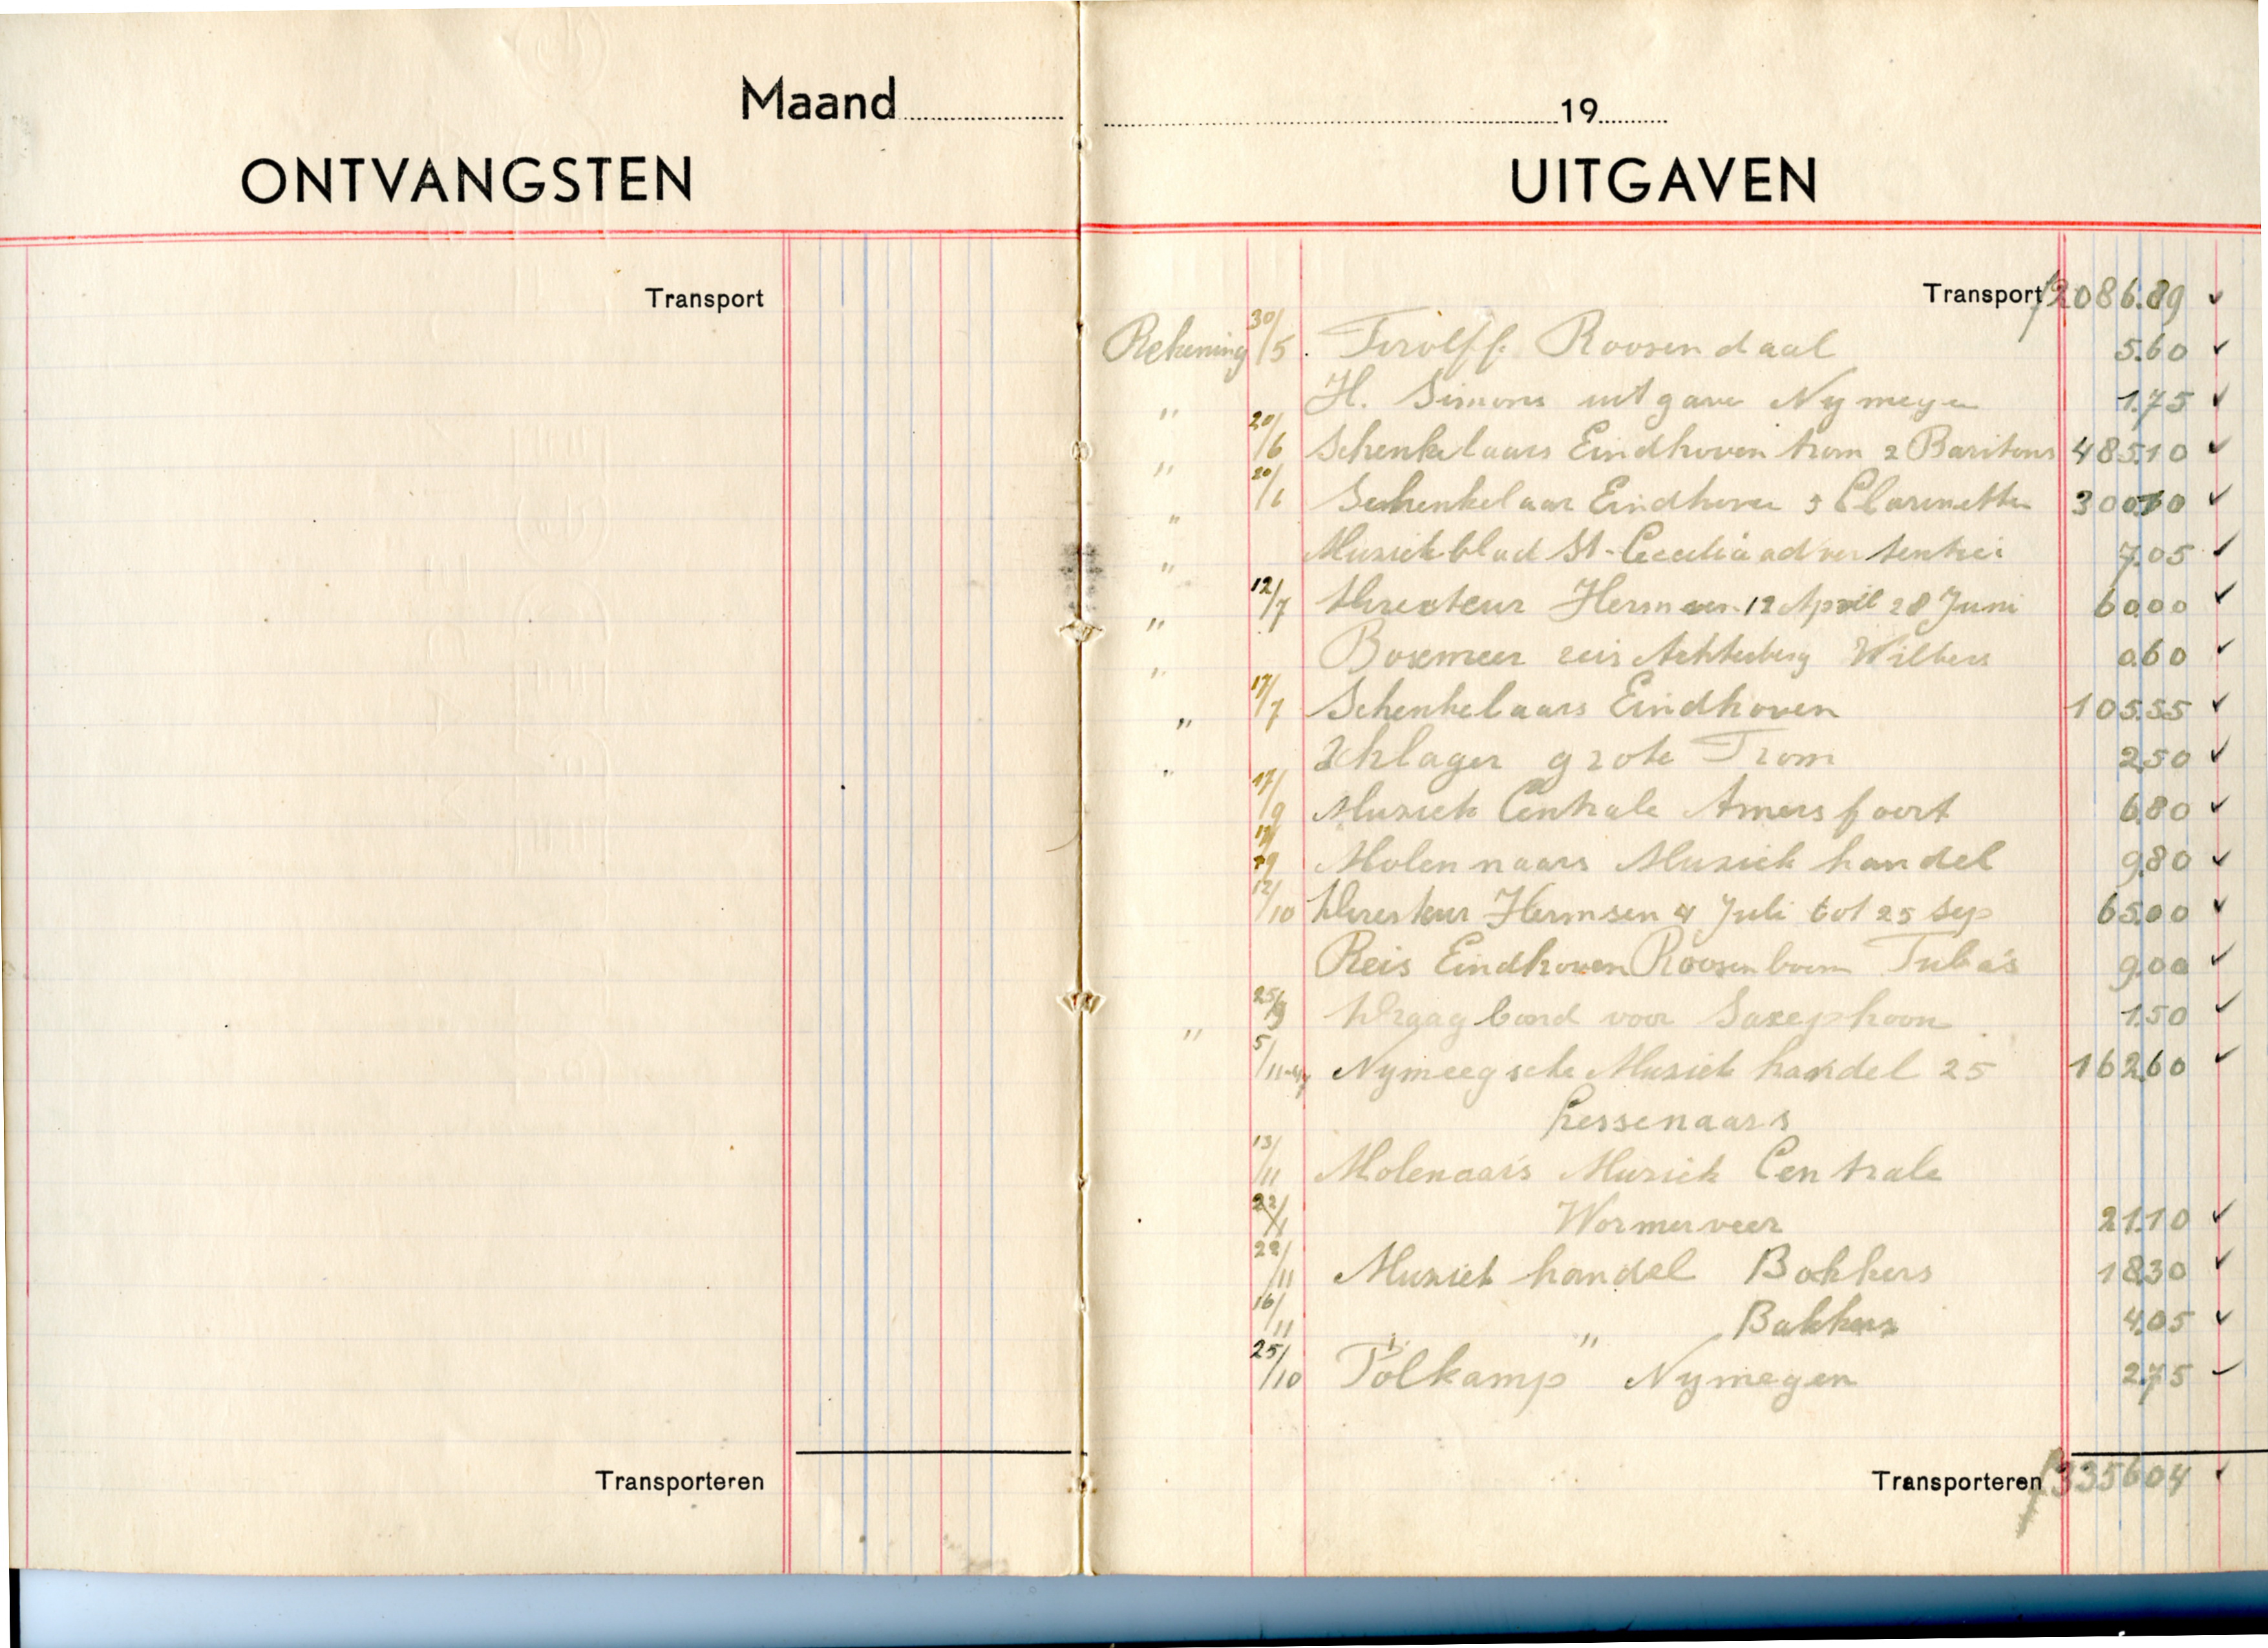 Maand 19
ONTVANGSTEN
UITGAVEN
Transport
Transport f 2086.89 ✓
Rekening 30/5 Tirolff Roosendaal 5.60 ✓
" H. Simons uitgave Nymegen 1.75 ✓
" 20/6 Schenkelaars Eindhoven trom 2 Baritons 485.10 ✓
" 20/6 Schenkelaar Eindhoven 3 Clarinetten ✓
" Muziekblad St-Cecilia advertentie 7.05 ✓
" 12/7 Directeur Hermsen 12 April 28 Juni 60.00 ✓
" Boxmeer reis Achterberg Wilbers 0.60 ✓
" 17/7 Schenkelaars Eindhoven 105.55 ✓
" Schlager grote Trom 2.50 ✓
17/9 Muziek Centrale Amersfoort 6.80 ✓
Molennaars Muziek handel 9.80 ✓
12/10 Directeur Hermsen 4 Juli tot 25 Sep 65.00 ✓
Reis Eindhoven Roosenboom Tuba's 9.00 ✓
" 25/9 Draagband voor Saxephoon 1.50 ✓
5/11-47 Nymeegsche Muziek handel 25 162.60 ✓
Lessenaars
13/11 Molenaars Muziek Centrale
Wormerveer 21.10 ✓
22/11 Muziek handel Bakkers 18.30 ✓
16/11 " Bakkers 4.05 ✓
25/10 Polkamp Nymegen 2.75 ✓
Transporteren
Transporteren f 3356.04 ✓